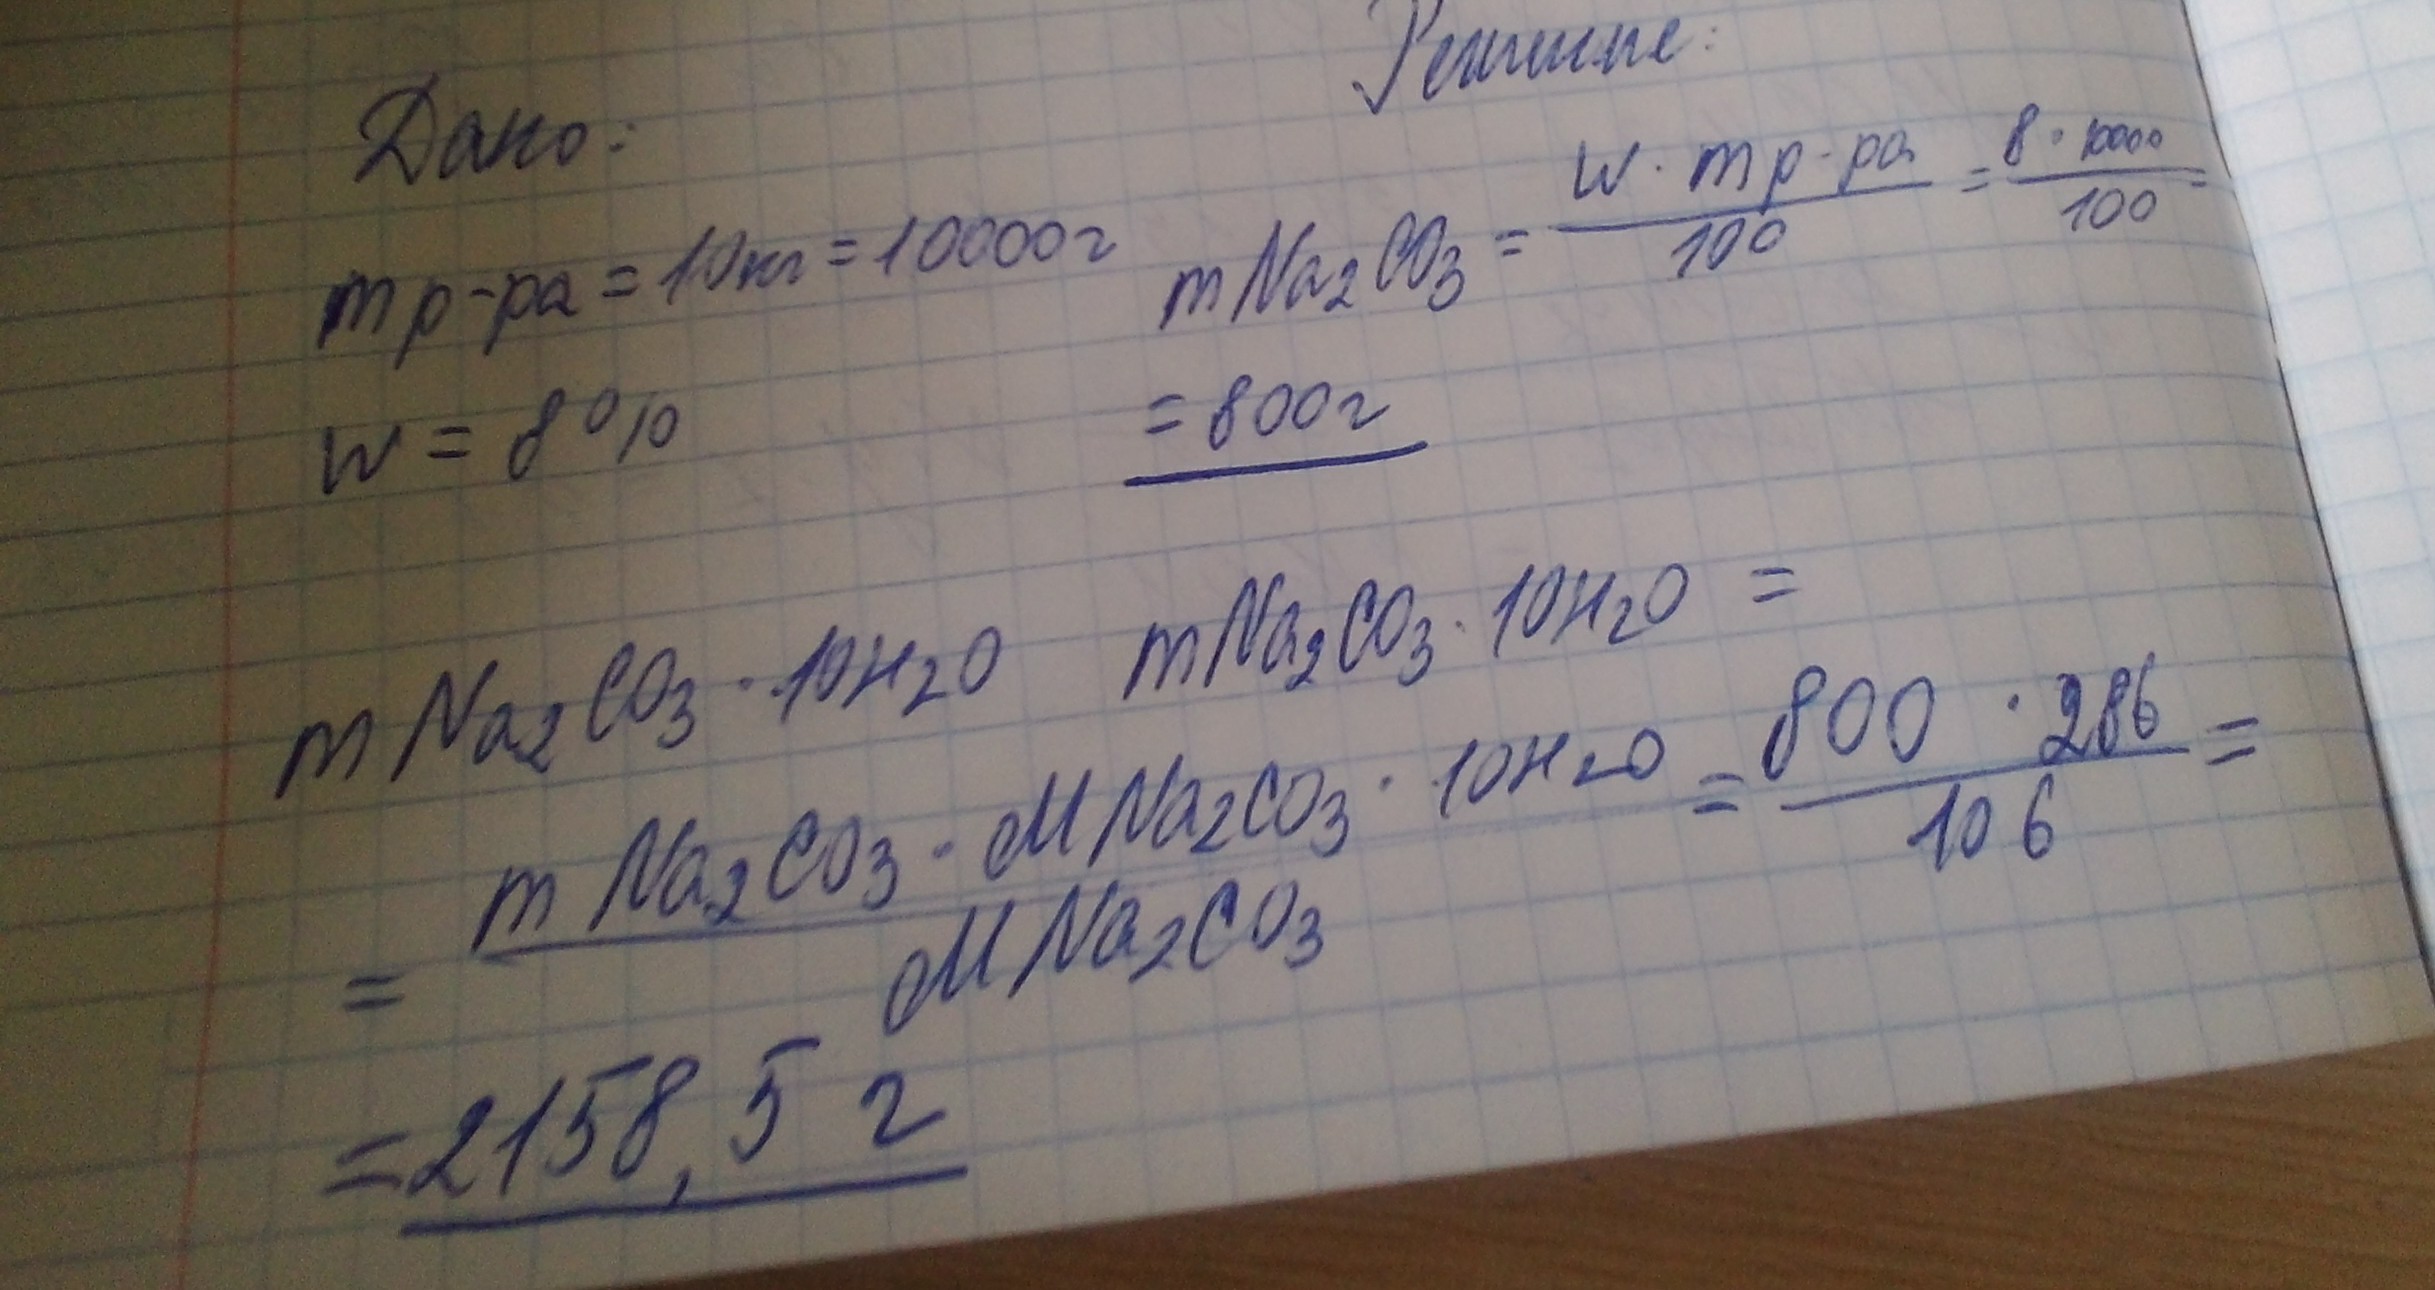 Решение:
Дано:
m р-ра = 10кг = 10000г
m Na₂CO₃ = W · m р-ра / 100 = 8 · 10000 / 100 =
W = 8%
= 800г
m Na₂CO₃ · 10H₂O
m Na₂CO₃ · 10H₂O =
= m Na₂CO₃ · M Na₂CO₃ · 10H₂O / M Na₂CO₃ = 800 · 286 / 106 =
= 2158,5 г